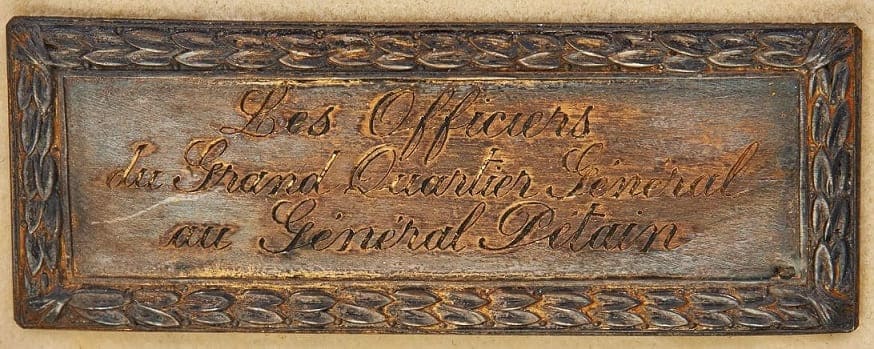 Les Officiers
du Grand Quartier Général
au Général Pétain